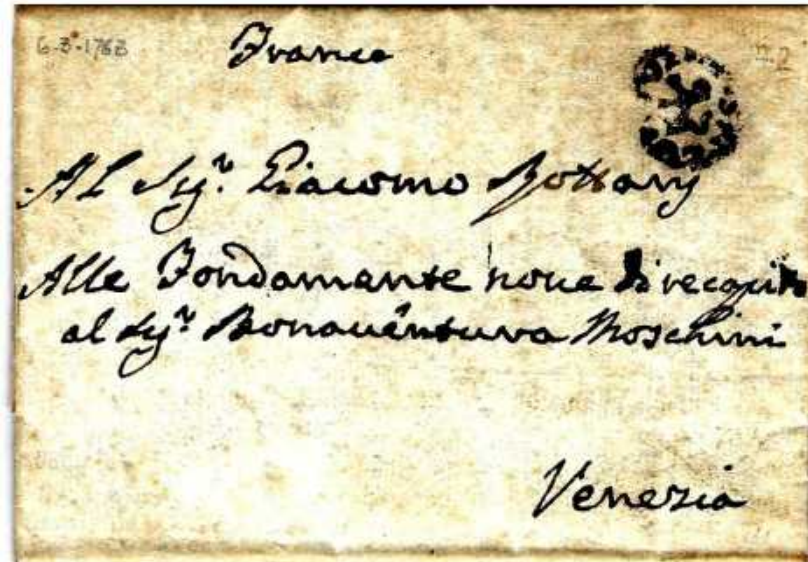 6-3-1763
Franca
n. 2
Al Sigr. Giacomo Bottary
Alle Fondamante noue di recapito
al Sigr. Bonauentura Moschini
Venezia